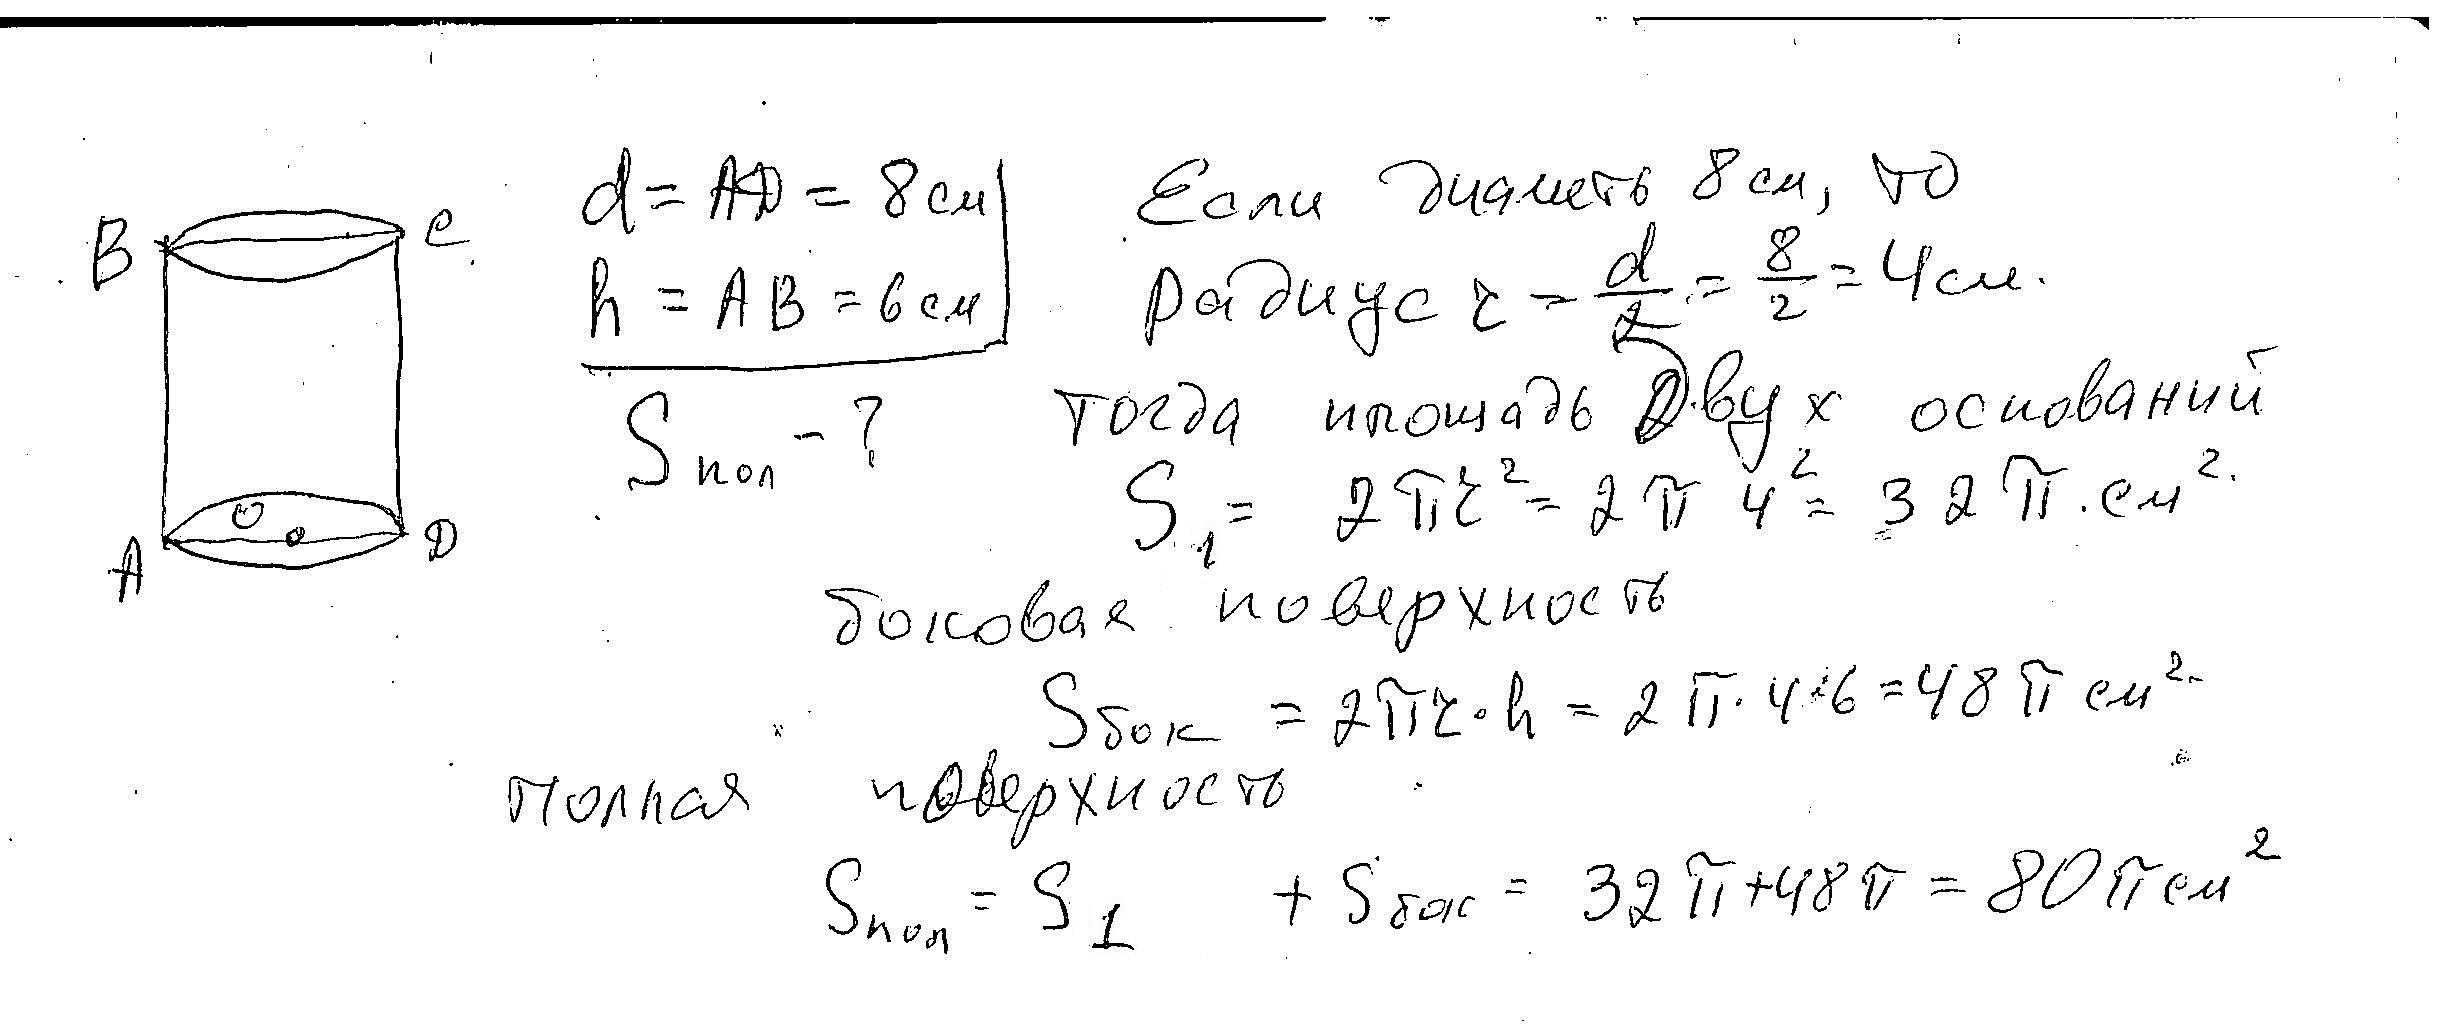 B C
A D
O
d = AD = 8 см
h = AB = 6 см
Sпол - ?
Если диаметь 8 см, то
радиус r = d/2 = 8/2 = 4 см.
тогда площадь двух оснований
S₁ = 2πr² = 2π 4² = 32π. см².
боковая поверхность
Sбок = 2πr·h = 2π·4·6 = 48π см².
полная поверхность
Sпол = S₁ + Sбок = 32π + 48π = 80π см²